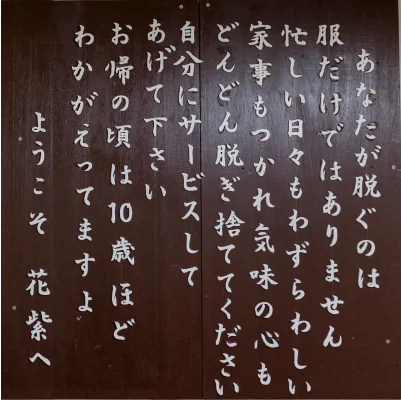 あなたが脱ぐのは
服だけではありません
忙しい日々もわずらわしい
家事もつかれ気味の心も
どんどん脱ぎ捨ててください
自分にサービスして
あげて下さい
お帰の頃は10歳ほど
わかがえってますよ
ようこそ 花紫へ